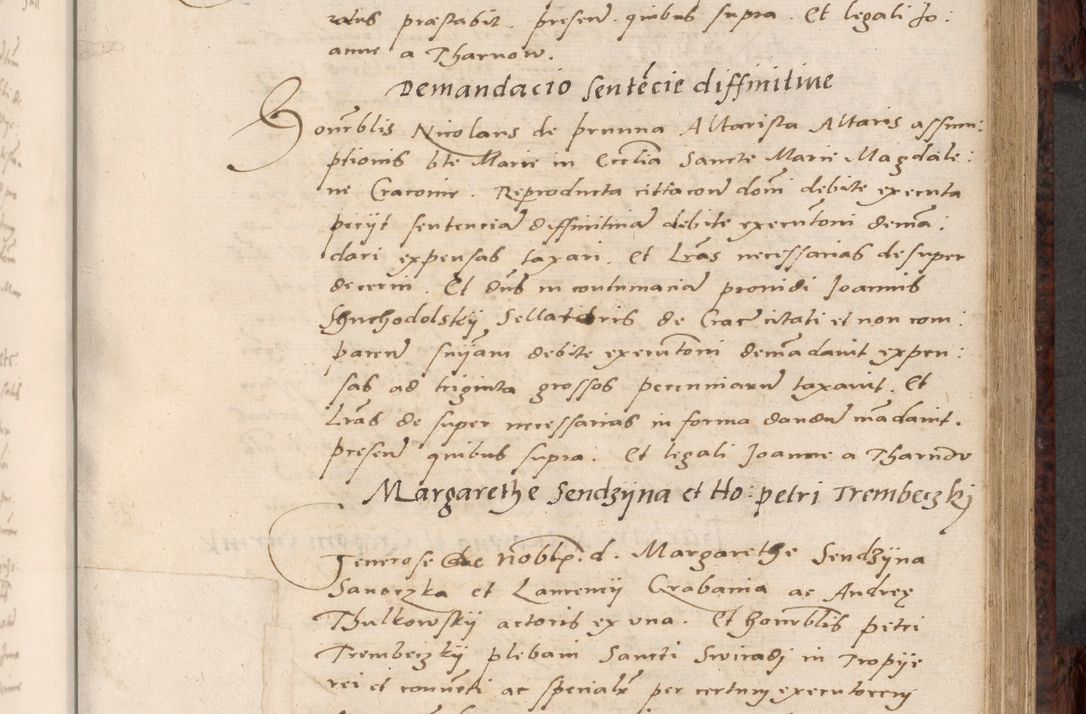 ratus præstabit. presen̄. quibus supra. Et legali Jo:
anne a Tharnow.
Demandacio sentēcie diffinitiue
Honorblis Nicolaus de prunna Altarista Altaris assum:
ptionis bte Marie in Ecclia Sancte Marie Magdale:
ne Cracouie. Reproducta cittacōn domī debite executa
peciit sentenciā diffinitiuā debite executōni demā:
dari expensas taxari. Et Lrās necessarias desuper
decerni. Et dn̄s in contumaciā prouidi Joannis
Shuchodolskij Sellatoris de Crac̄ citati et non com:
paren̄. sniam debite executōni demādauit expen:
sas ad triginta grossos pecuniarū taxauit. Et
Lrās de super necessarias in forma dandū mādauit.
presen̄ quibus supra. Et legali Joanne a Tharnow
Margarethe Sendzijna et Ho: petri Trembeczkj
Generose ac nobilū. d. Margarethe Sendzijna
Sanoczka et Laurencij Grabania ac Andreę
Thulkowskij actoris ex vna. Et honorblis petri
Trembeczkij plebani Sancti Swiradj in Tropije
rei et conuēti ac specialr̄ per certum executorem